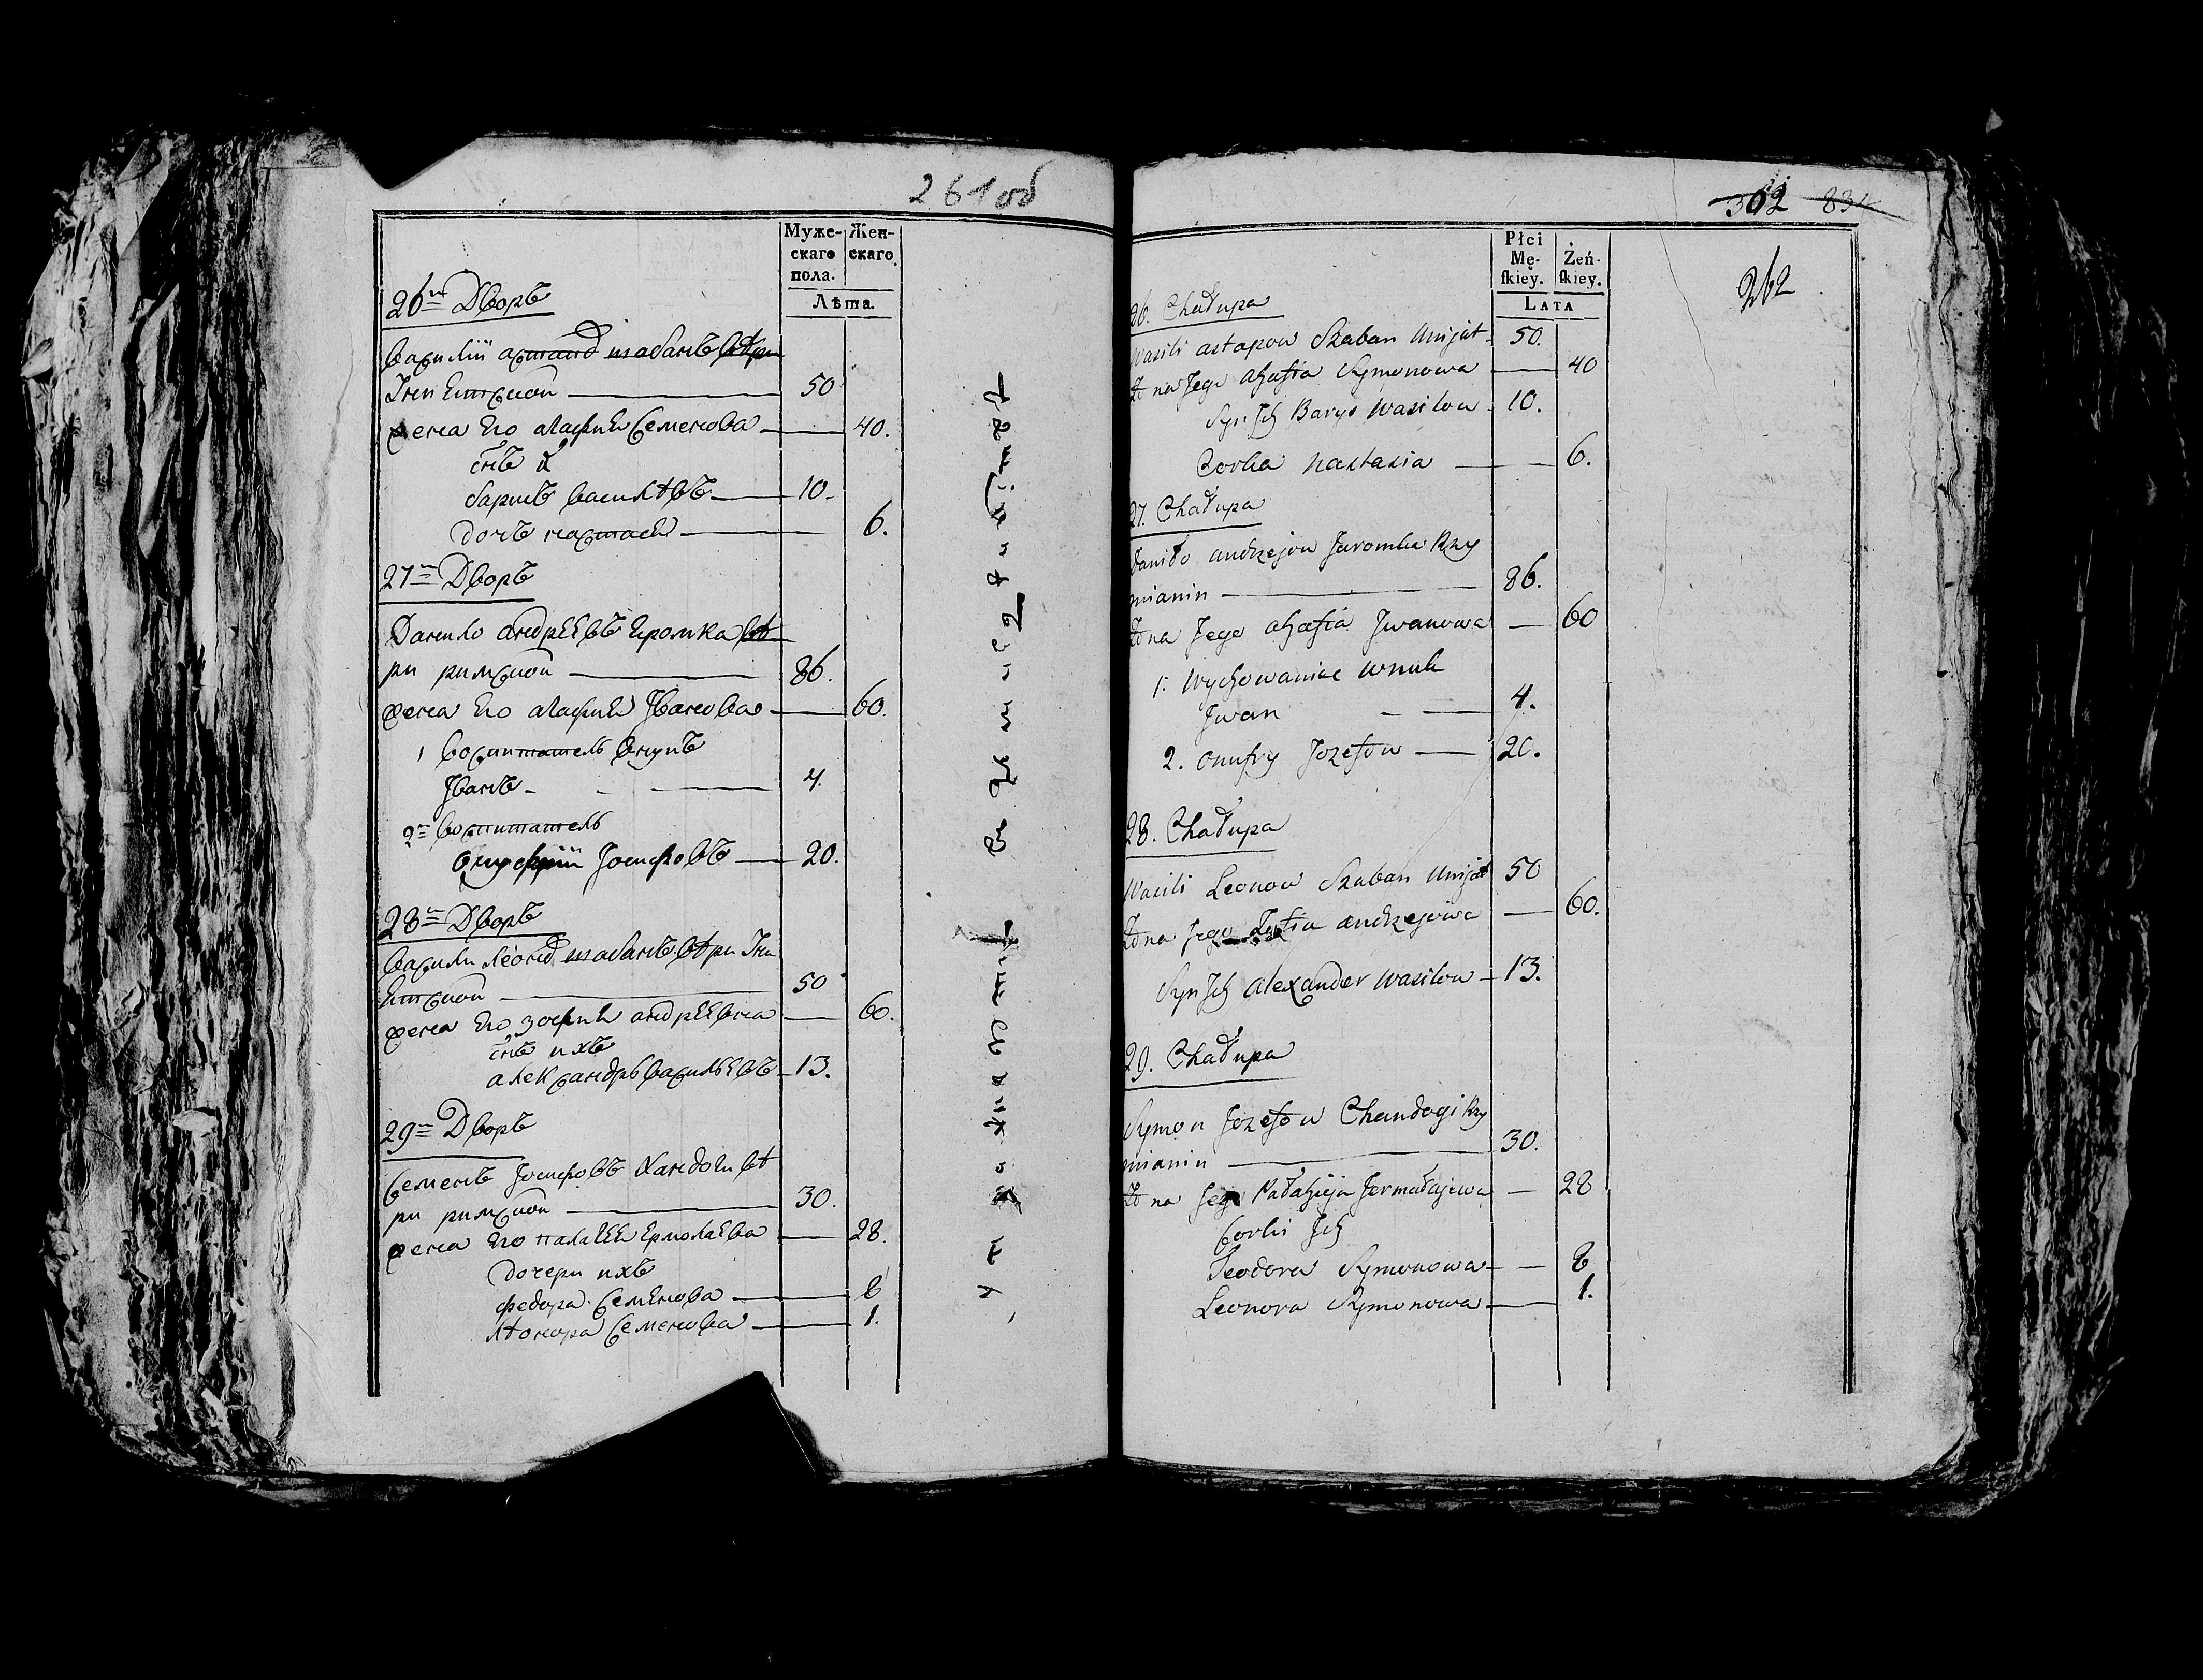 261 об
Муже-
скаго
пола.
Жен-
скаго.
Лѣта.
26й Дворъ
Василій Астапов Шабанъ вѣри
Униетской 50
жена Его Агафия Семенова 40.
Снъ их
барисъ Василѣвъ 10.
дочъ настася 6.
27й Дворъ
Данило андреевъ Яромка вѣ
ри римской 86.
жена Его агафия Иванова 60.
1 воспитатель внукъ
Иванъ 4.
2й воспитатель
Онуфрий Иосифовъ 20.
28й Дворъ
Васили Леонов шабанъ вѣри Уни
етской 50
жена Его Зофия андреевна 60.
Снъ ихъ
александръ Васильевъ 13.
29й Дворъ
Семенъ Иосифовъ Хандоги вѣ
ри римской 30.
жена Его палагея Ермолаева 28.
дочери ихъ
федора Семенова 8
лѣонора Семенова 1.
302 834
262
Płci
Mę-
ſkiey.
Żeń-
ſkiey.
LATA
26. Chałupa
Wasili astapow Szaban Unijat 50.
Żona Jego ahafia Symonowa 40
Syn Ich Barys Wasilow 10.
Corka nastasia 6.
27. Chałupa
Daniło andrzejow Jaromka Rzy
mianin 86.
Żona Jego ahafia Jwanowa 60
1. Wychowaniec wnuk
Jwan 4.
2. onufry Jozefow 20.
28. Chałupa
Wasili Leonow Szaban Unijat 50
Żona Jego Zofia andrzejowa 60.
Syn Ich alexander wasilow 13.
29. Chałupa
Symon Jozefow Chandogi Rzy
mianin 30.
Żona Jego Pałahija Jermałajewa 28
Corki Ich
Teodora Symonowa 8
Leonora Symonowa 1.